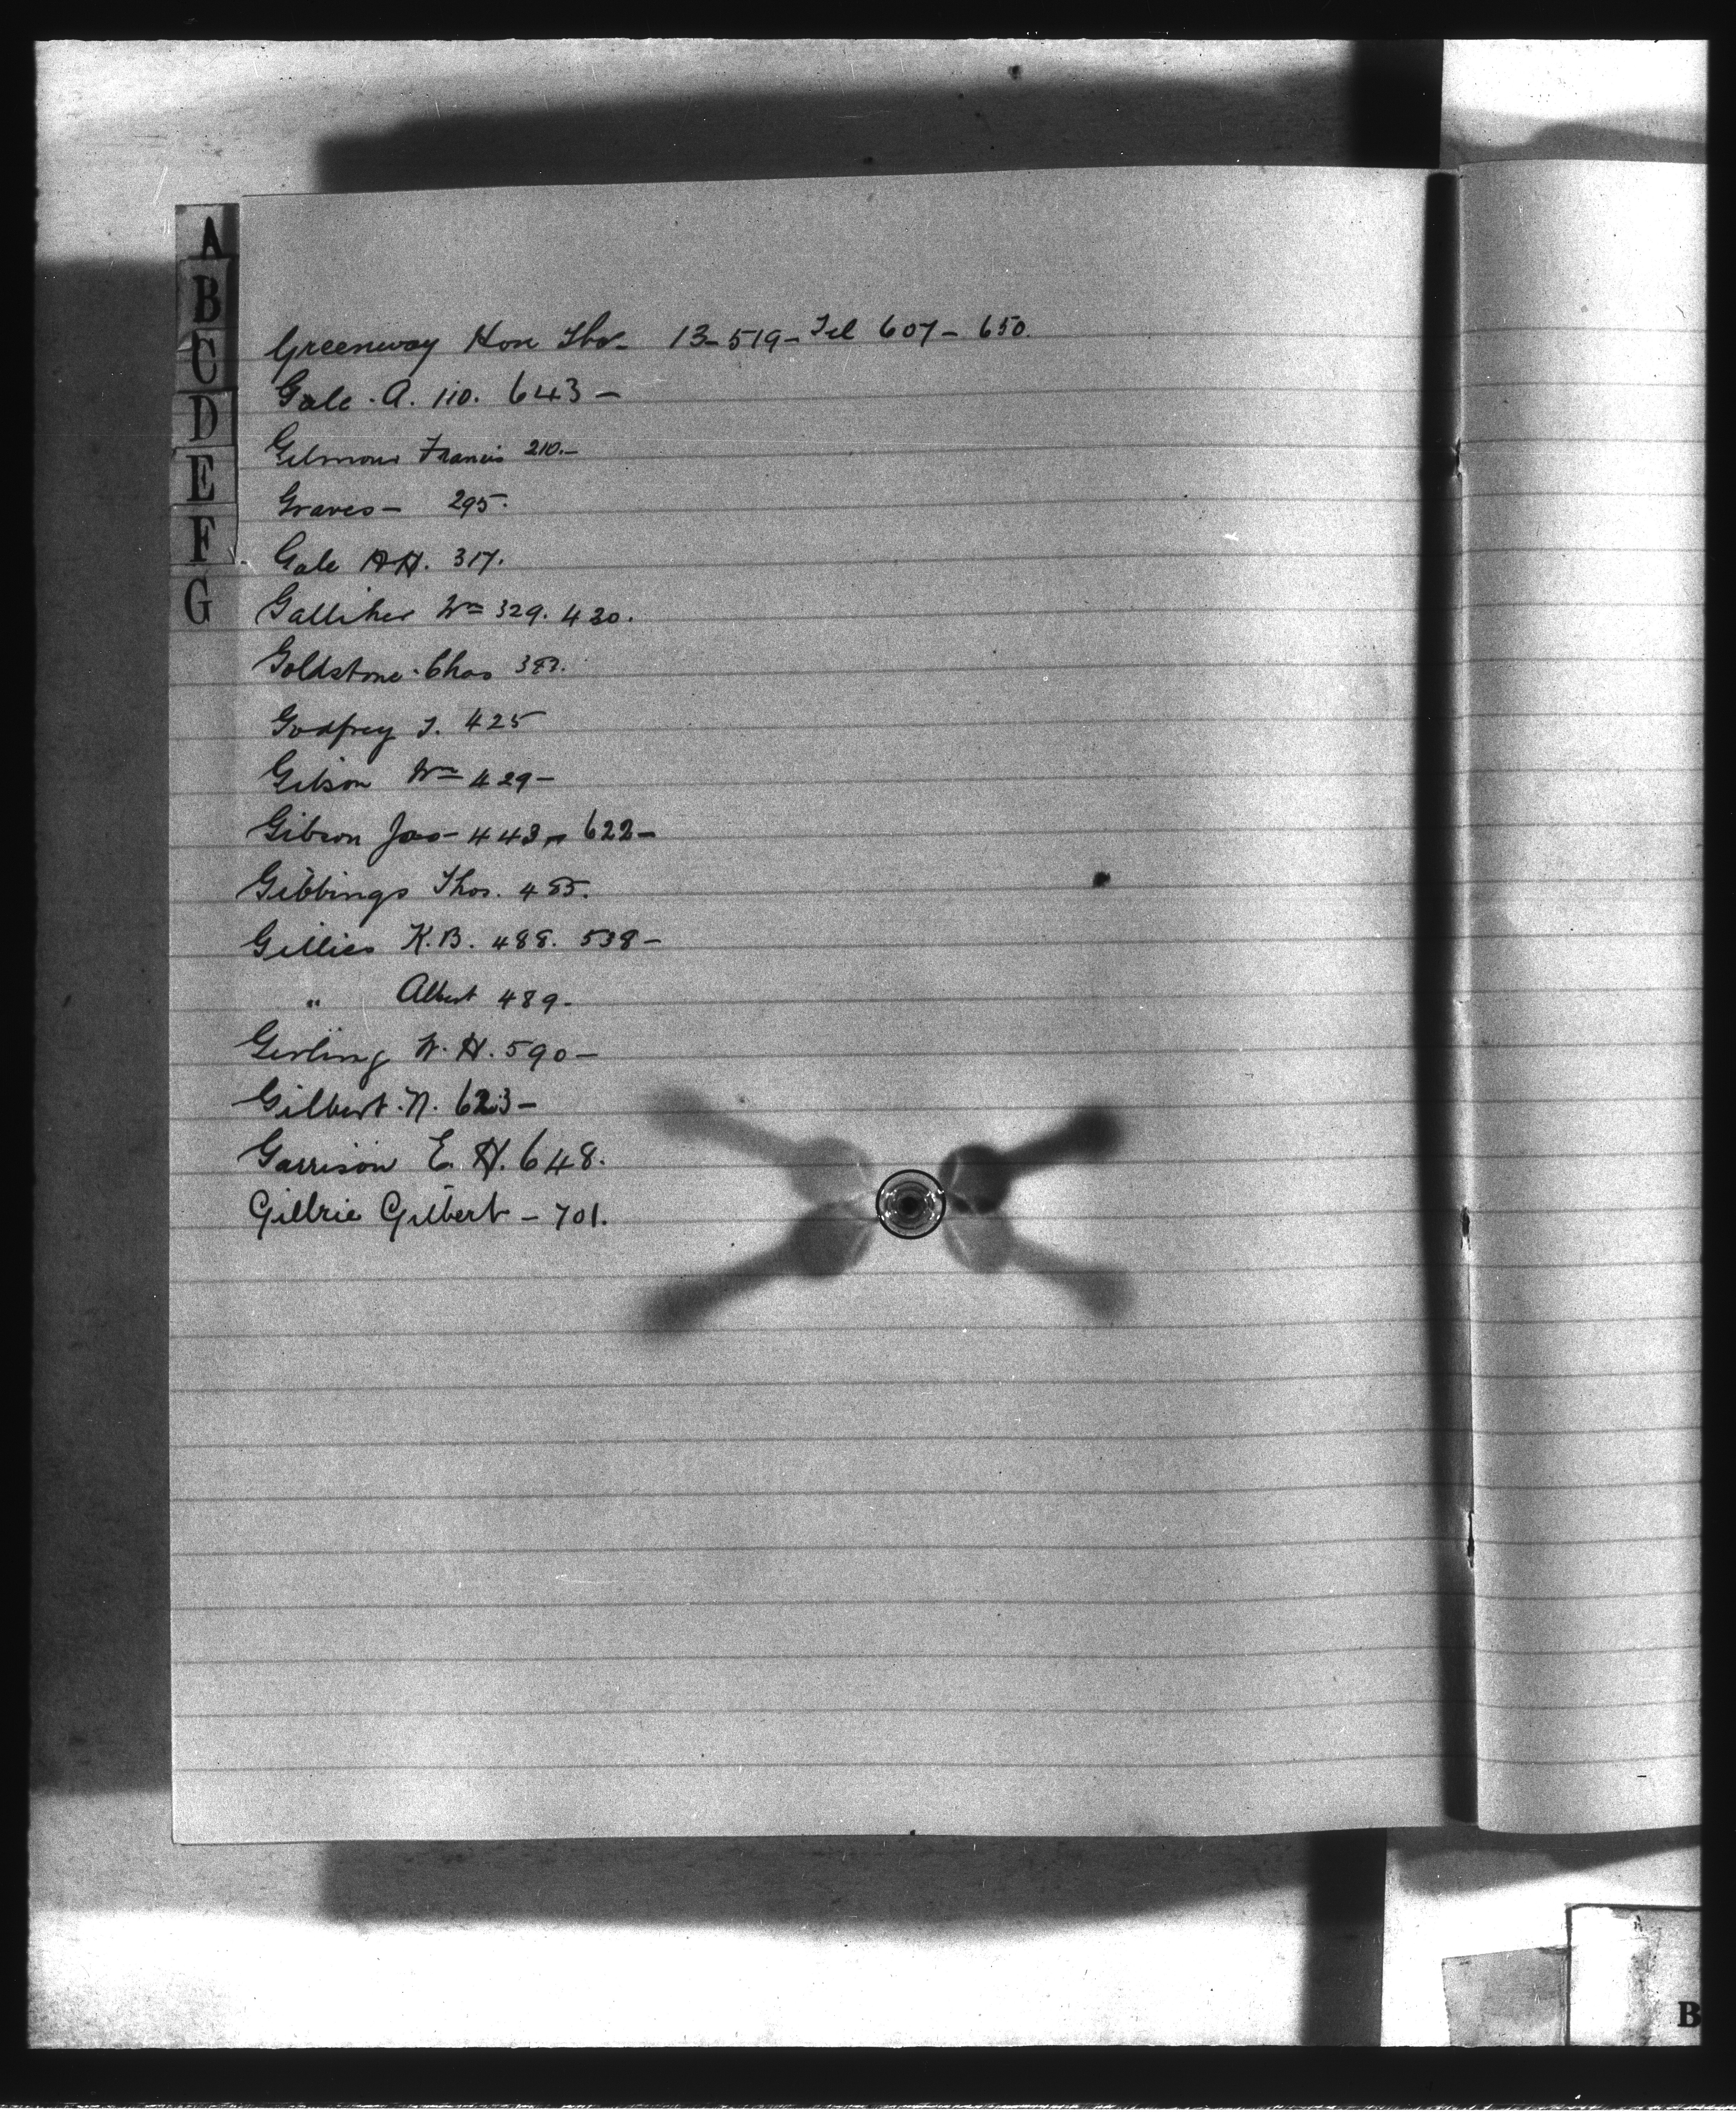 A
B
C
D
E
F
G
Greenway Hon Thos- 13-519-Tel 607- 650.
Gale. A. 110. 643-
Gilmour Francis 210.-
Graves- 295.
Gale A.H. 317.
Galliher Wm 329. 430.
Goldstone. Chas
Godfrey J. 425
Gibson Wm 429-
Gibson Jas- 443- 622-
Gibbings Thos. 485.
Gillies K.B. 488. 538-
" Albert 489-
Girling W.H. 590-
Gilbert. N. 623-
Garrison E.H. 648.
Gillrie Gilbert - 701.
B